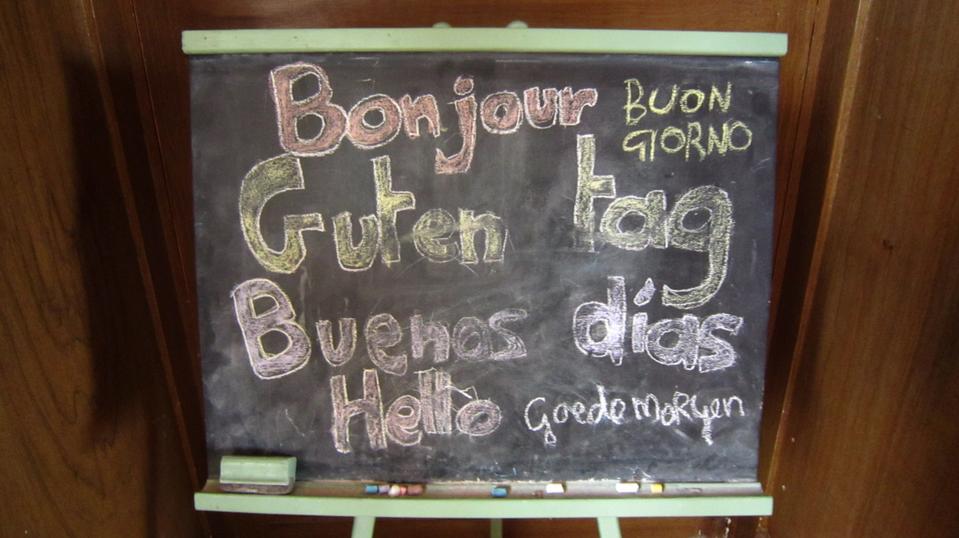 Bonjour
BUON
GIORNO
Guten tag
Buenos días
Hello
Goede MoRgen